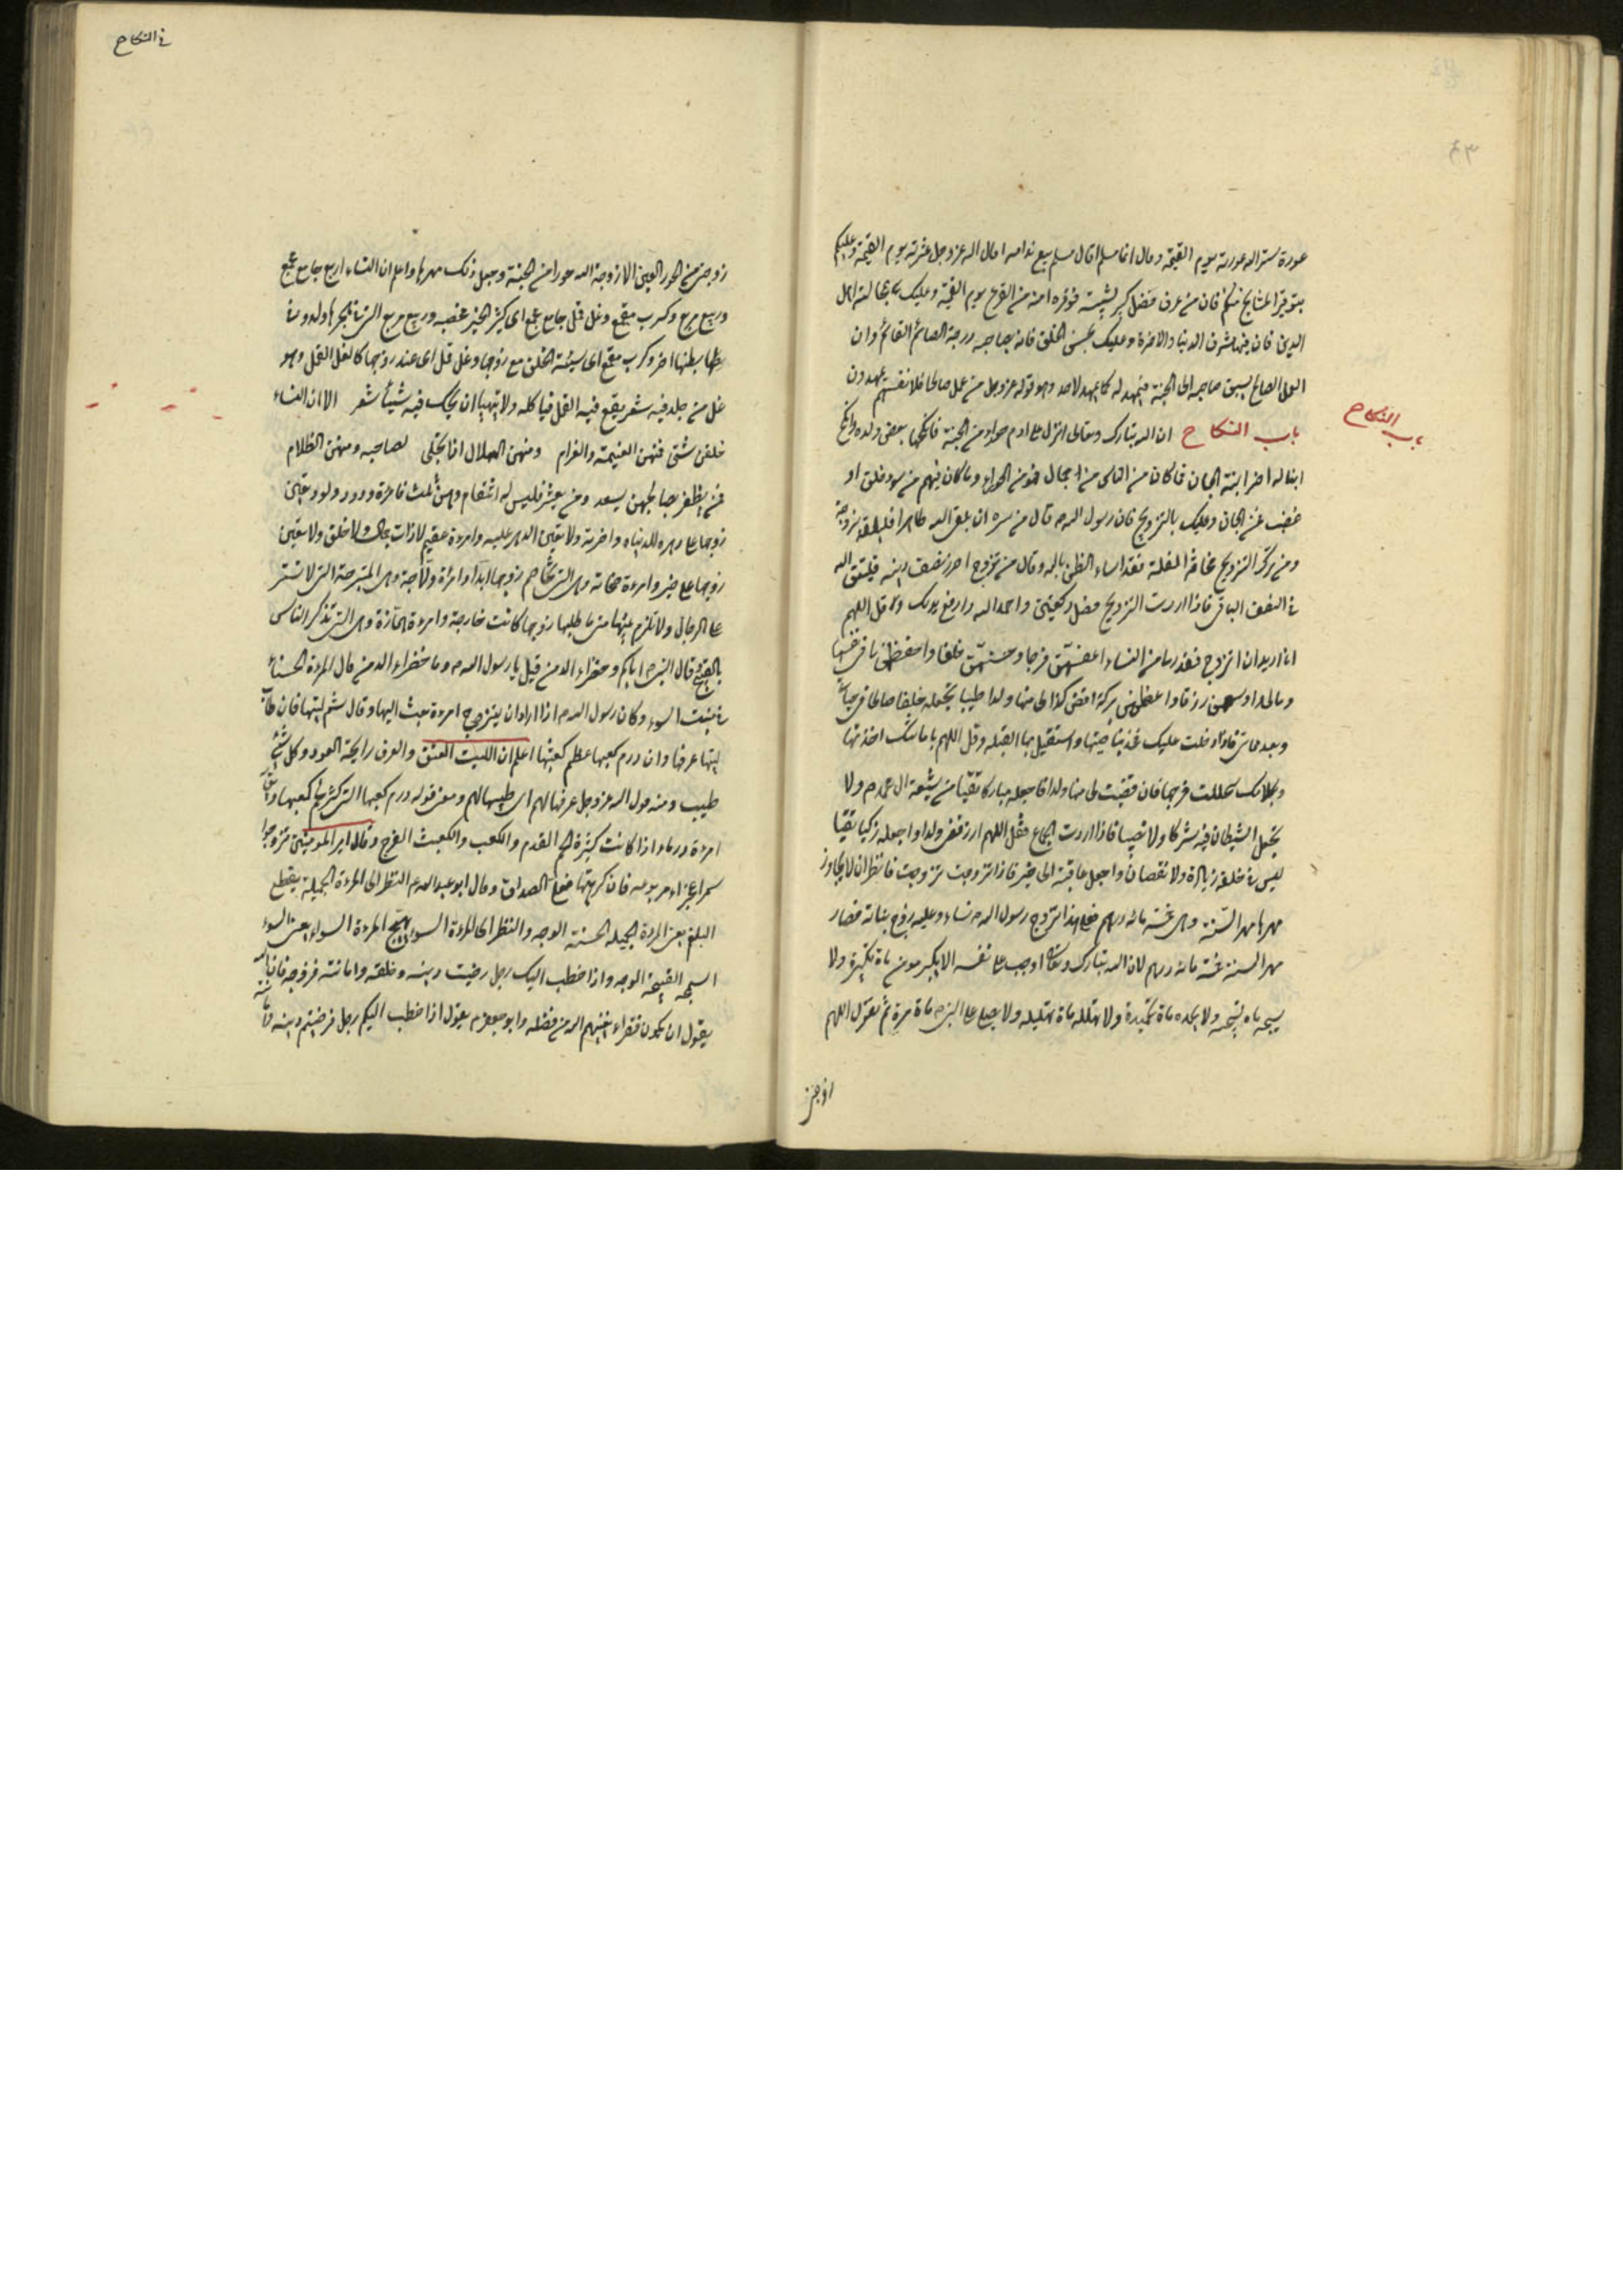 عورة ستر الله عورته يوم القيمة وقال ايما مسلم اقال مسلم بيع ندامه اقال الله عز وجل عثرته يوم القيمة وعليكم
بتوقير المشايخ منكم فان من عرف فضل كبير لشيبته فوقره امنه من الفزع يوم القيمة وعليك بمجالسة اهل
الدين فان فيها شرف الدنيا والاخرة وعليك بحسن الخلق فانه يبلغ صاحبه درجة الصائم القائم وان
العمل الصالح يسبق صاحبه الى الجنة فيمهد له كما يمهد لاحد وهو قوله عز وجل من عمل صالحا فلانفسهم يمهدون
باب النكاح
باب النكاح ان الله تبارك وتعالى انزل على ادم حوراء من الجنة فانكحها بعض ولده وانكح
ابنا له اخر ابنة الجان فما كان من الناس من جمال فهو من الحوراء وما كان فيهم من سوء خلق او
غضب فمن الجان وعليك بالتزويج فان رسول الله ص قال من سره ان يلقى الله طاهرا فليلقه بزوجة
ومن ترك التزويج مخافة العيلة فقد اساء الظن بالله وقال من تزوج احرز نصف دينه فليتق الله
في النصف الباقى فاذا اردت التزويج فصل ركعتين واحمد الله وارفع يديك وقل اللهم
انا اريد ان اتزوج فقدر لى من النساء اعفهن فرجا واحسنهن خلقا واحفظهن لى فى نفسها
ومالى واوسعهن رزقا واعظمهن بركة اقض لى منها ولدا طيبا تجعله خلفا صالحا فى حياتى
وبعد مماتى فاذا دخلت عليك فخذ بناصيتها واستقبل بها القبلة وقل اللهم بامانتك اخذتها
وبكلامك استحللت فرجها فان قضيت لى منها ولدا فاجعله مباركا تقيا من شيعة ال محمد ص ولا
تجعل الشيطان فيه شركا ولا نصيبا فاذا اردت الجماع فقل اللهم ارزقنى ولدا واجعله زكيا تقيا
ليس فى خلقه زيادة ولا نقصان واجعل عاقبته الى خير فاذا تزوجت فانظر ان لا يجاوز
مهرها مهر السنة وهى خمسة مائة درهم فعلى هذا تزوج رسول الله ص نساءه وعليه زوج بناته فصار
مهر السنة خمسة مائة درهم لان الله تبارك وتعالى اوجب على نفسه الا يكبر مؤمن ماة تكبيرة ولا
يسبحه ماة تسبيحة ولا يحمده ماة تحميدة ولا يهلله ماة تهليلة ولا يصلى على النبى ص ماة مرة ثم يقول اللهم
زوجنى
فى النكاح
زوجنى من الحور العين الا زوجه الله حورا من الجنة وجعل ذلك مهرها واعلم ان النساء اربع جامع مجمع
وربيع مربع وكرب مقمع وغل قمل جامع مجمع اى كثير الخير مخصبة وربيع مربع التى فى حجرها ولد وفى
بطنها اخر وكرب مقمع اى سيئة الخلق مع زوجها وغل قمل اى عند زوجها كالغل القمل وهو
غل من جلد فيه شعر يقع فيه القمل فياكله ولا يتهيأ ان يحك فيه شيئا شعر الا ان النساء
خلقن شتى فمنهن الغنيمة والغرام ومنهن الهلال اذا تجلى لصاحبه ومنهن الظلام
فمن يظفر بصالحهن يسعد ومن يعثر فليس له انتقام وهن ثلث فامرءة ودود ولود تعين
زوجها على دهره لدنياه واخرته ولا تعين الدهر عليه وامرءة عقيم لا ذات جمال ولا خلق ولا تعين
زوجها على خير وامرءة صخابة وهى التى تخاصم زوجها ابدا وامرءة ولاجة وهى المتبرجة التى لا تستتر
عن الرجال ولا تلزم بيتها متى ما طلبها زوجها كانت خارجة وامرءة همازة وهى التى تذكر الناس
بالقبيح وقال النبى ص اياكم وخضراء الدمن قيل يا رسول الله ص وما خضراء الدمن قال المرءة الحسناء
فى منبت السوء وكان رسول الله ص اذا اراد ان يتزوج امرءة بعث اليها وقال شم ليتها فان طاب
ليتها عرفها وان درم كعبها عظم كعثبها اعلم ان الليت العنق والعرف رايحة العود وكل شئ
طيب ومنه قول الله عز وجل عرفها لهم اى طيبها لهم ومعنى قوله درم كعبها اى كثر لحم كعبها ويقال
امرءة درماء اذا كانت كثيرة لحم القدم والكعب والكعثب الفرج وقال امير المؤمنين تزوجوا
سمراء عجزاء مربوعه فان كرهتها فعلى الصداق وقال ابو عبد الله ع النظر الى المرءة الجميلة يقطع
البلغم يعنى المرءة الجميله الحسنة الوجه والنظر الى المرءة السواء يهيج المرءة السوداء يعنى السوء
السمجه القبيحة الوجه واذا خطب اليك رجل رضيت دينه وخلقه وامانته فزوجه فان الله
يقول ان يكون فقراء يغنيهم الله من فضله وابو جعفر ع يقول اذا خطب اليكم رجل فرضيتم دينه وامانته